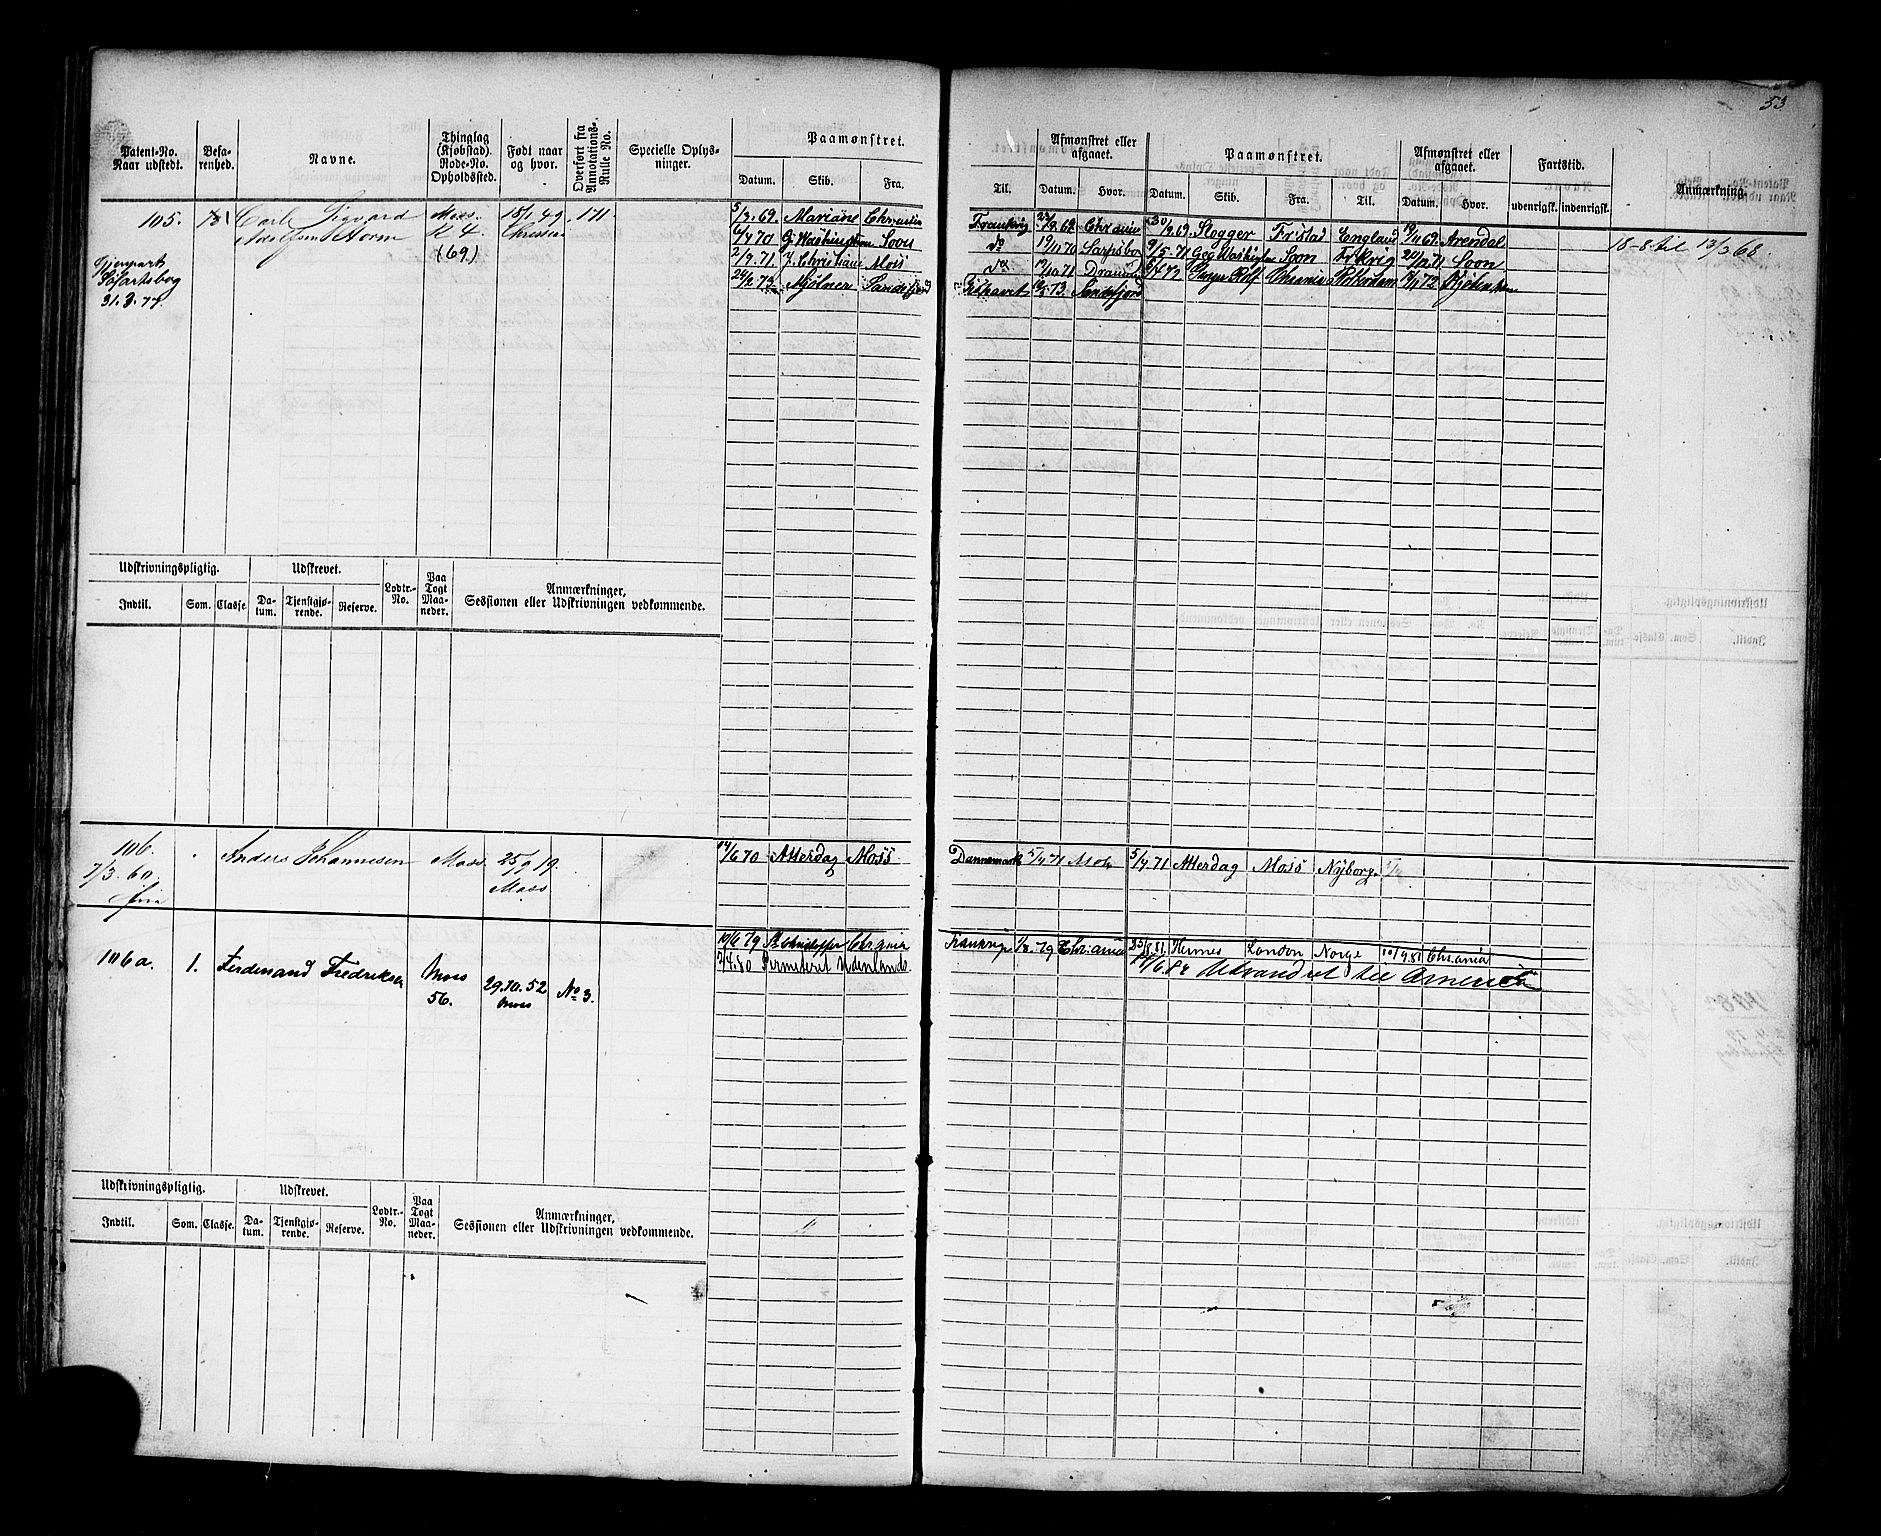 53
Patent-No. Naar udstedt. Befarenhed. Navne. Thinglag (Kjøbstad). Rode-No. Opholdssted. Født naar og hvor. Overført fra Annotations-Rulle No. Specielle Oplysninger. Paamønstret. Datum. Skib. Fra.
Til. Afmønstret eller afgaaet. Datum. Hvor. Paamønstret. Datum. Skib. Fra. Til. Afmønstret eller afgaaet. Datum. Hvor. Fartstid. udenrigsk. indenrigsk. Anmærkning.
105. Carl Sigvard Moss. 15/1 49 171. 5/3.69. Mariane Christia
Adolfsen Storm R 4 Christia 6/4 70 G. Washington Soon
(69) 2/9.71 J. Christiane Moss
Gjenpart Søfartsbog 31.3.77. 24/2.73 Mjölner Sandefjord
Frankrig 23/8.69. Chrania 30/9.69 Slogger Fr.stad England 19/11 69 Arendal 18-8 til 13/3 68.
do 19/11 70 Sarpsbor 9/5.71 Geo Washington Soon Frkrig 22/7 71 Soon
do 17/10 71 Drammen Chrania Rotterdam
Ishavet 73. Sandefjord
Udskrivningspligtig. Udskrevet. Lodtr.-No. Paa Togt Maaneder. Anmærkninger, Sessionen eller Udskrivningen vedkommende.
Indtil. Som. Classe. Datum. Tjenstgjørende. Reserve.
106. Anders Johannesen Moss. 25/9 19. Moss 14/6 70 Atterdag Moss
7/3 60
Dannemark 5/4 71 Mos 5/4.71 Atterdag Moss Nyborg
106a. 1. Ferdinand Fredriksen Moss 56. 29.10.52 Moss No 3. 10/6 79 Christoffer Chrania
2/4.80 Permitteret Udenlands
Frankrige 1/8.79 Chr.ania 25/8.81. Hermes London Norge 10/9.81 Chr.ania
6.82 Udvandret til America
Udskrivningspligtig. Udskrevet. Lodtr.-No. Paa Togt Maaneder. Anmærkninger, Sessionen eller Udskrivningen vedkommende.
Indtil. Som. Classe. Datum. Tjenstgjørende. Reserve.